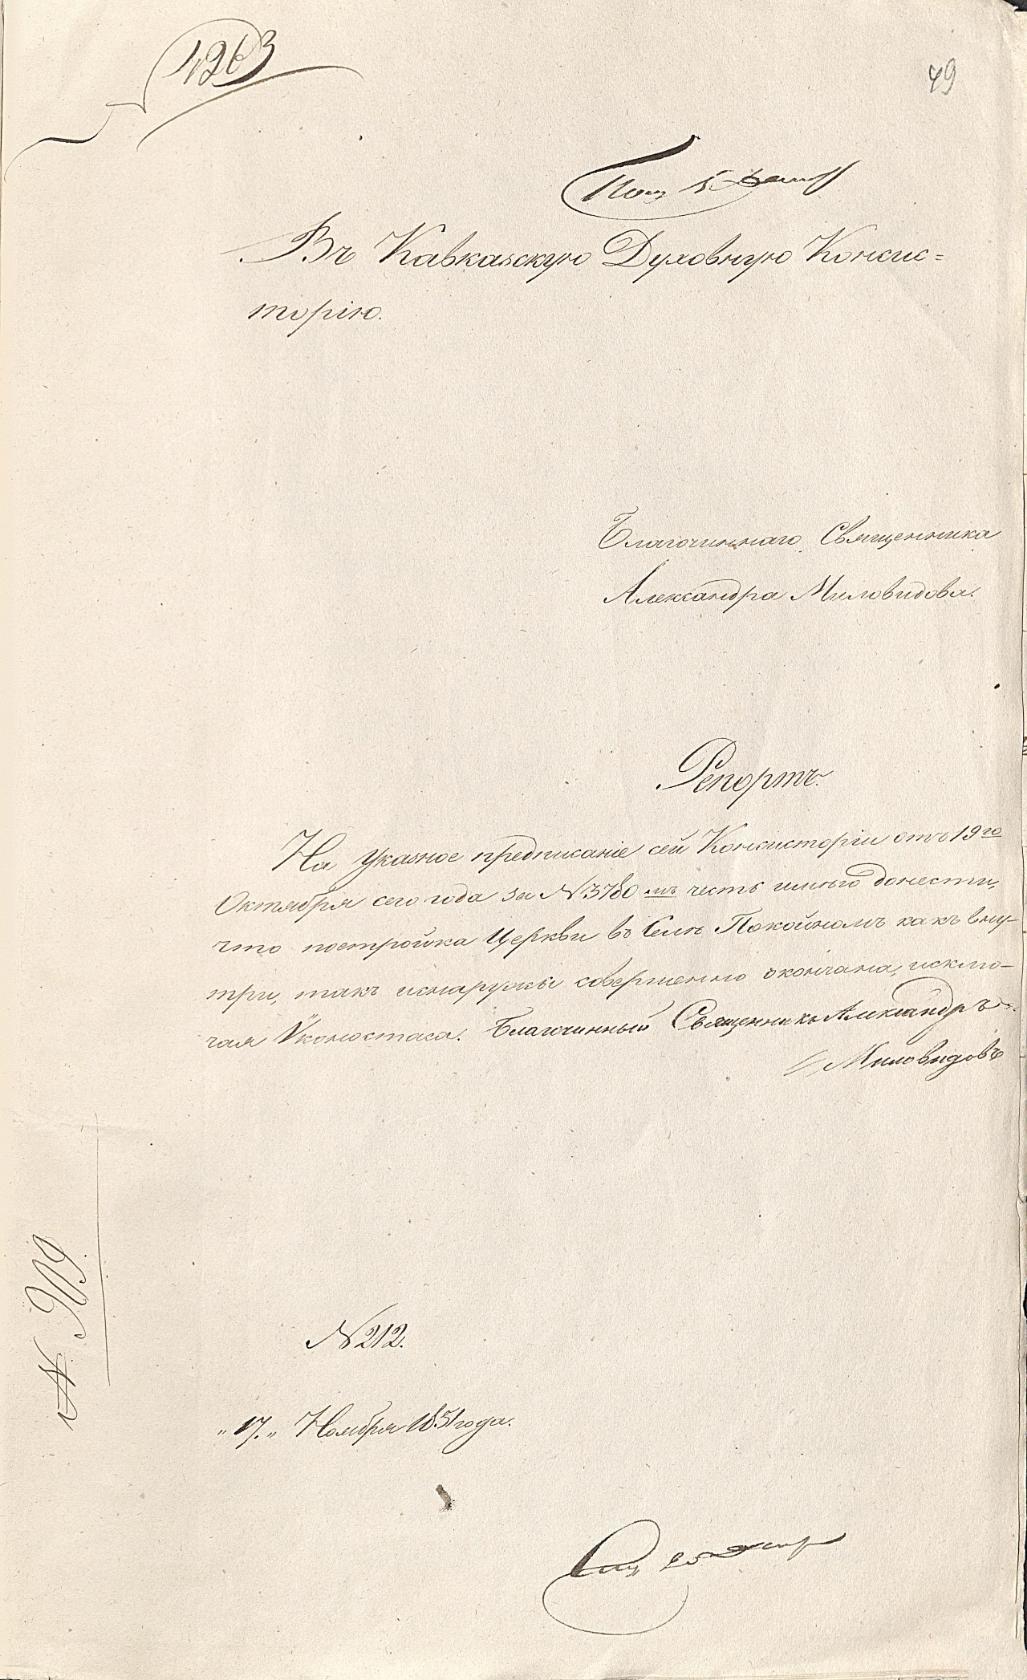 4263
49
Въ Кавказскую Духовную Консис=
торію.
Благочиннаго Священника
Александра Миловидова.
Репортъ.
На указное предписаніе сей Консисторіи отъ 19го
Октября сего года за № 3780 мъ честь имѣю донести,
что постройка Церкви въ Селѣ Покойномъ какъ вну-
три, такъ иснаружи совершенно окончана, исклю-
чая Иконостаса. Благочинный Священникъ Александръ
Миловидовъ
№ 919.
№ 212.
„17.„ Ноября 1851 года.